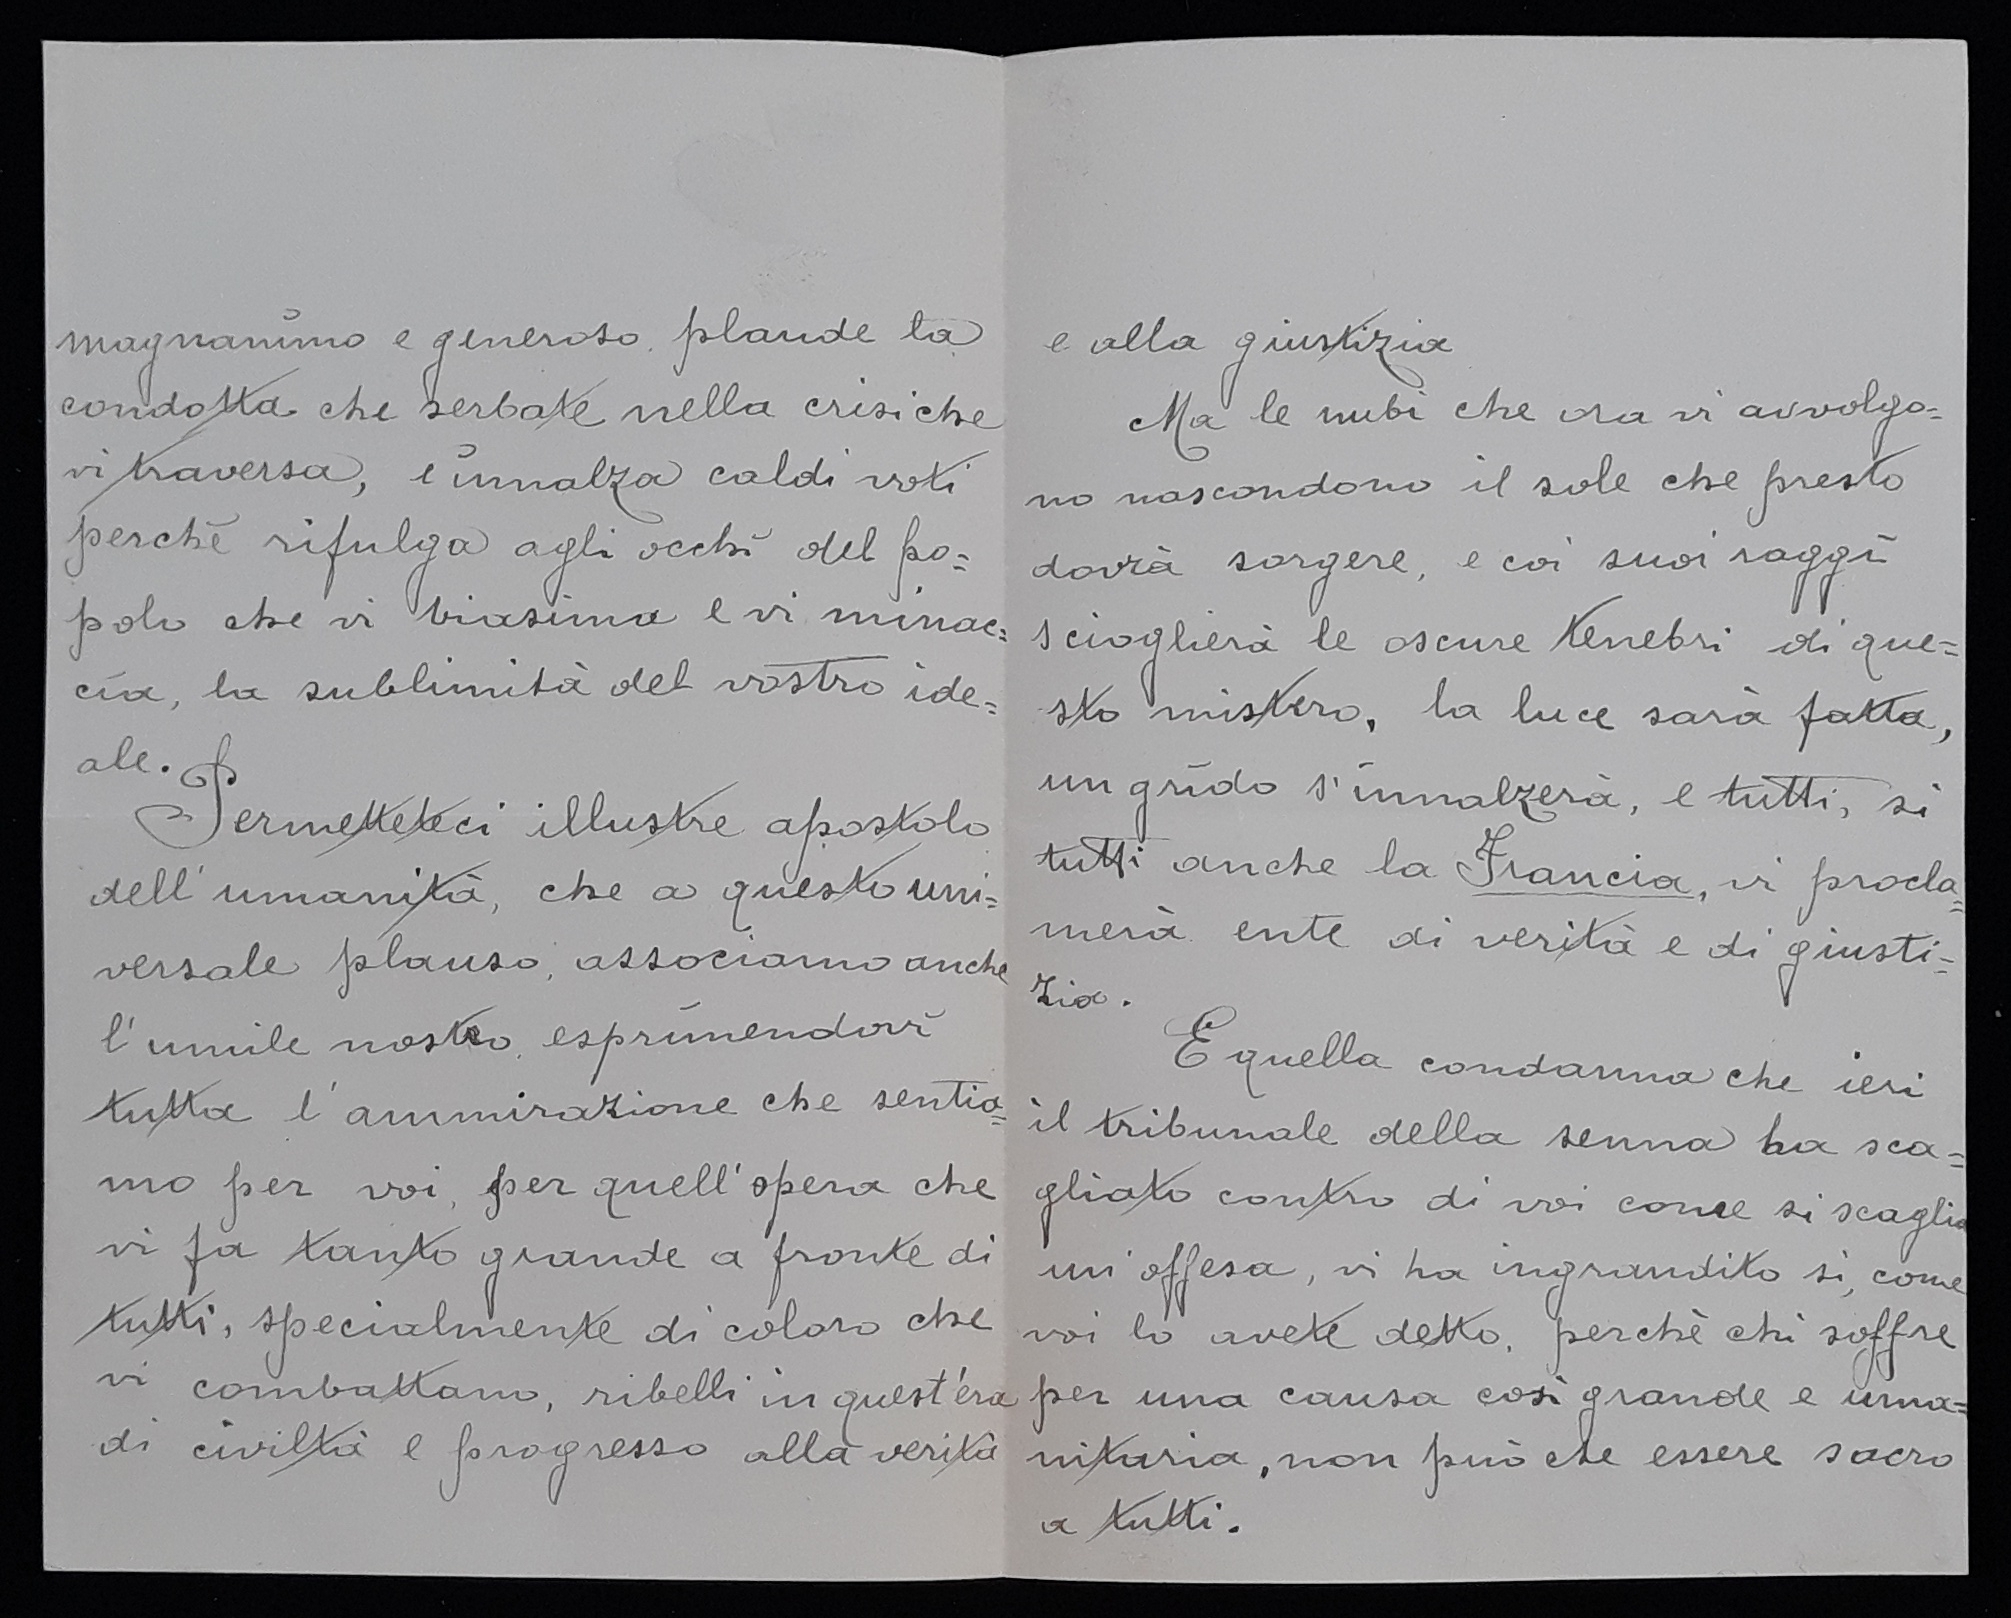 magnanimo e generoso plaude la
condotta che serbate nella crisi che
vi traversa, e innalza caldi voti
perchè rifulga agli occhi del po=
polo che vi biasima e vi minac=
cia, la sublimità del vostro ide=
ale.
Permetteteci illustre apostolo
dell'umanità, che a questo uni=
versale plauso, associamo anche
l'umile nostro, esprimendovi
tutta l'ammirazione che sentia=
mo per voi, per quell'opera che
vi fa tanto grande a fronte di
tutti, specialmente di coloro che
vi combattano, ribelli in quest'éra
di civiltà e progresso alla verità
e alla giustizia
Ma le nubi che ora vi avvolgo=
no nascondono il sole che presto
dovrà sorgere, e coi suoi raggi
scioglierà le oscure tenebri di que=
sto mistero, la luce sarà fatta,
un grido s'innalzerà, e tutti, si
tutti anche la Francia, vi procla=
merà ente di verità e di giusti=
zia.
E quella condanna che ieri
il tribunale della senna ha sca=
gliato contro di voi come si scaglia
un'offesa, vi ha ingrandito si, come
voi lo avete detto, perchè chi soffre
per una causa così grande e uma=
nitaria, non può che essere sacro
a tutti.